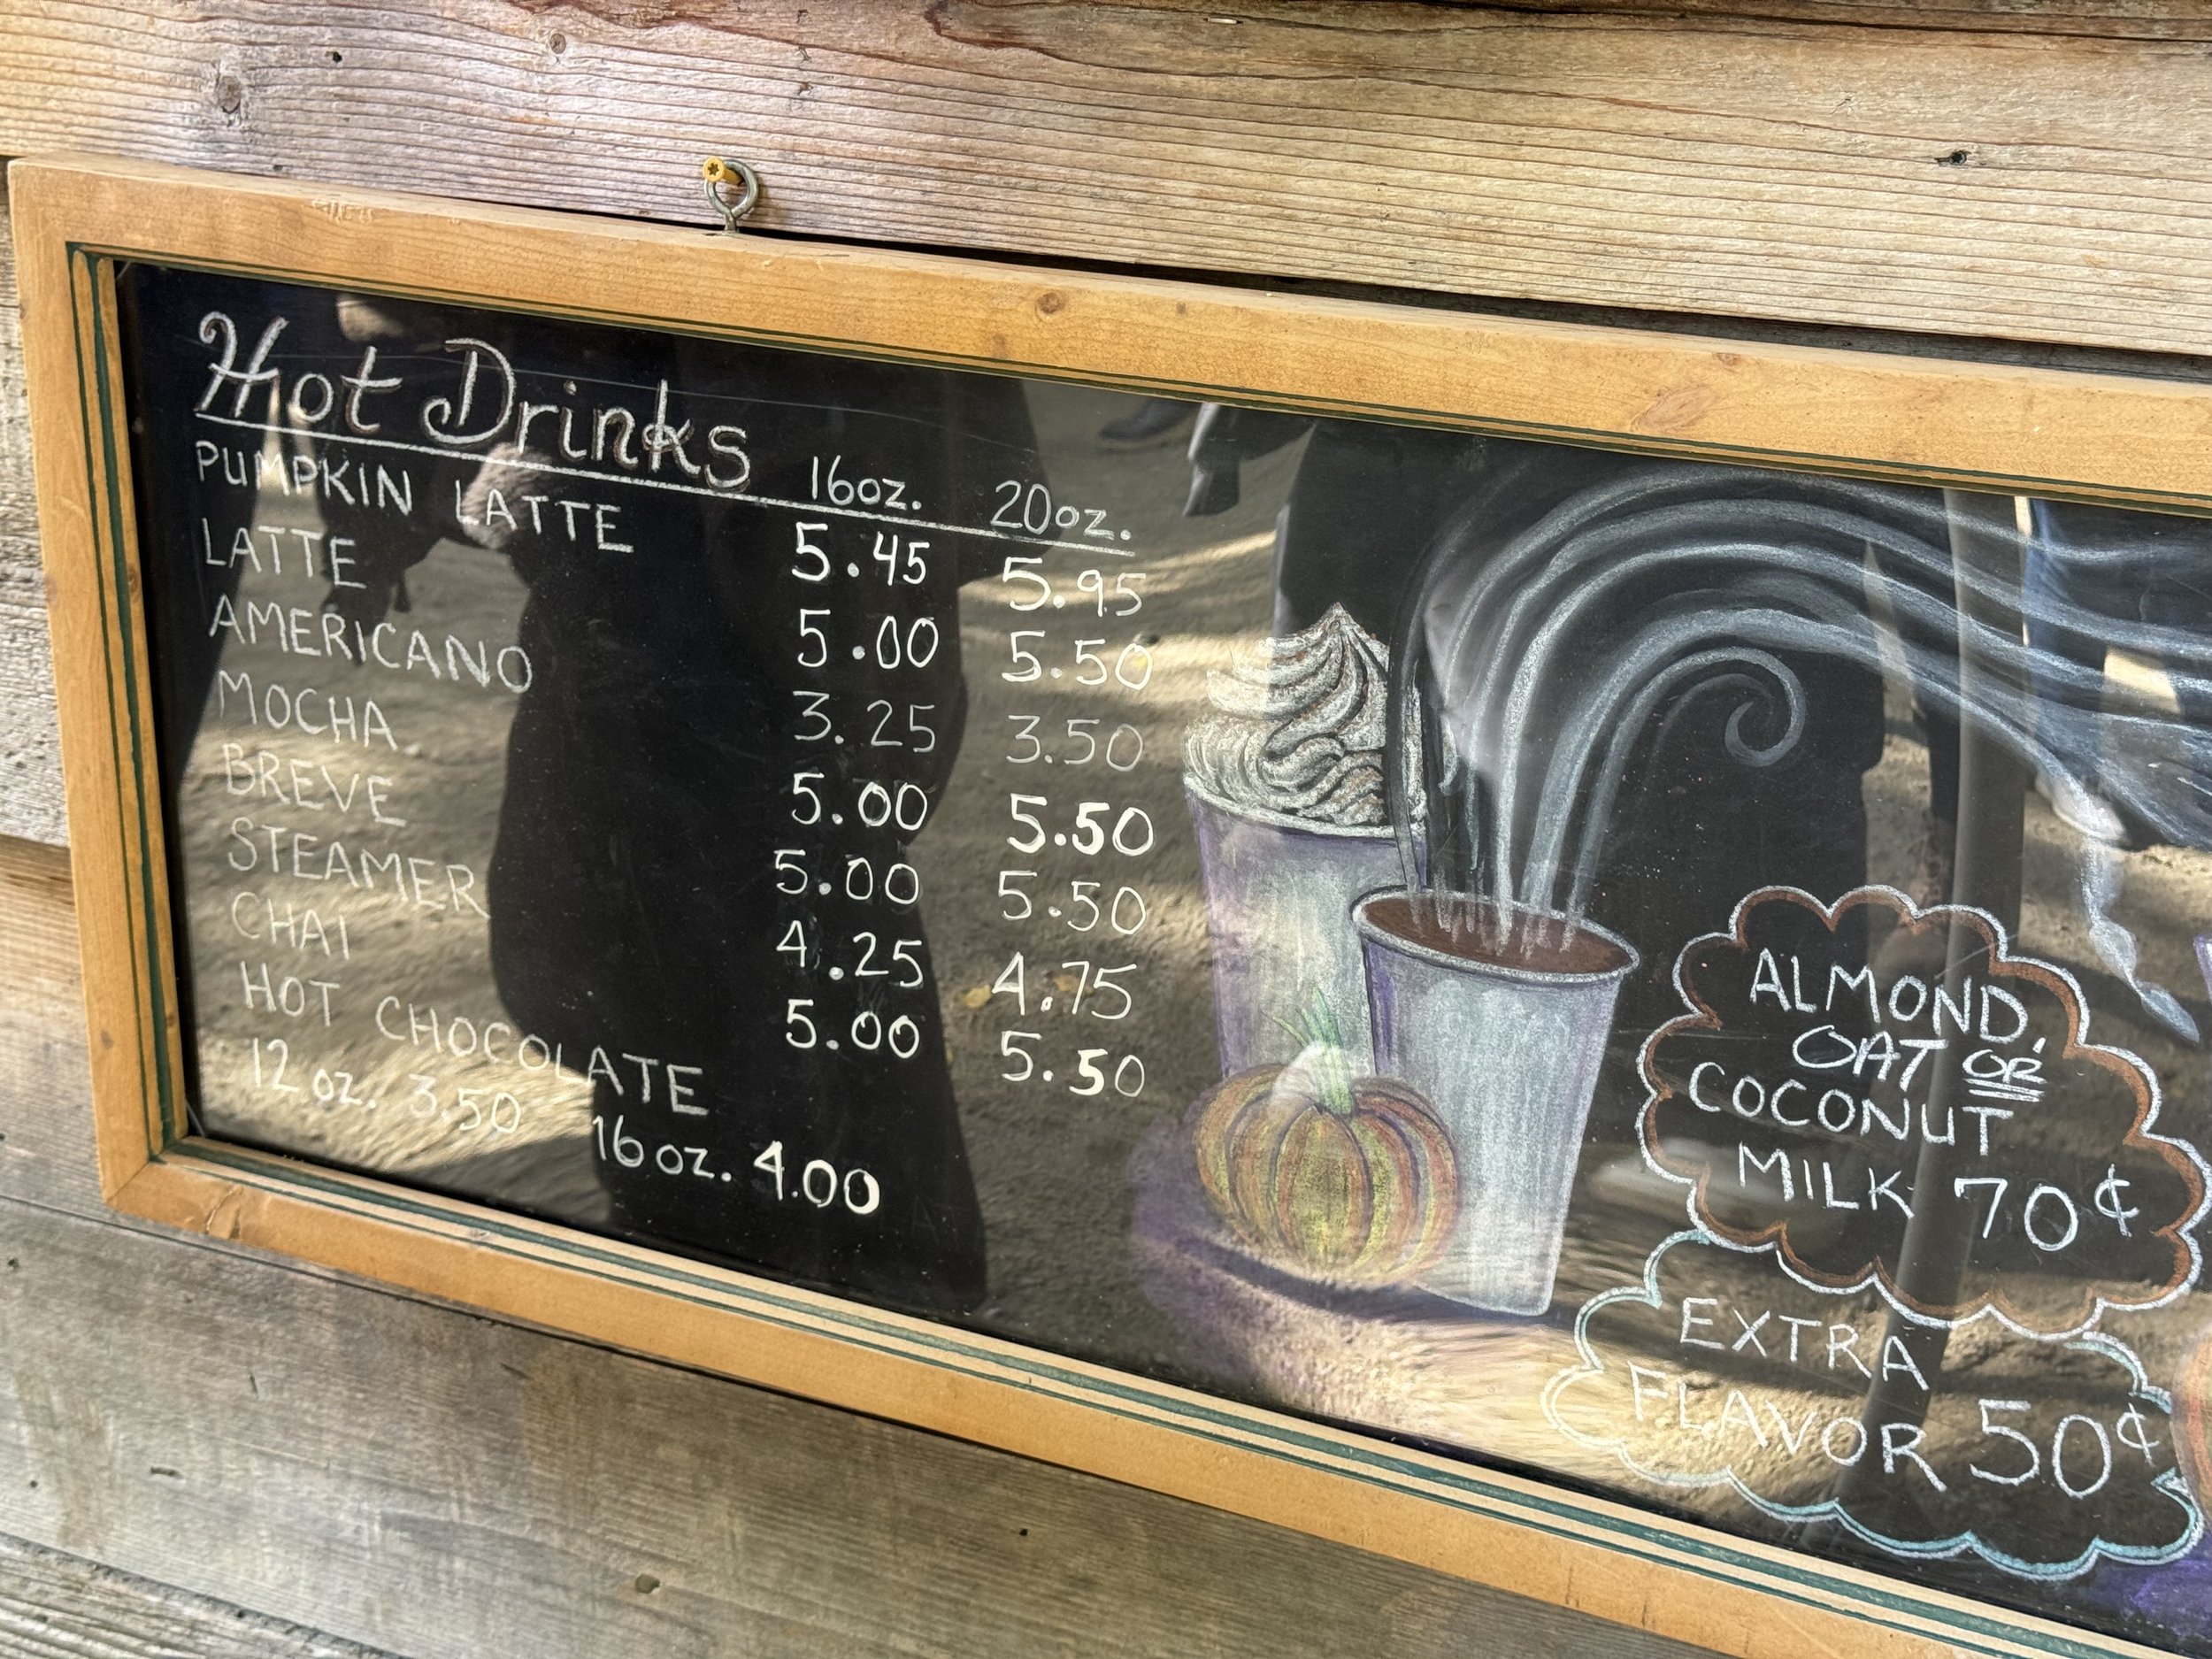 Hot Drinks 16oz. 20oz.
PUMPKIN LATTE 5.45 5.95
LATTE 5.00 5.50
AMERICANO 3.25 3.50
MOCHA 5.00 5.50
BREVE 5.00 5.50
STEAMER 4.25 4.75
CHAI 5.00 5.50
HOT CHOCOLATE
12 oz. 3.50 16 oz. 4.00
ALMOND,
OAT OR
COCONUT
MILK 70¢
EXTRA
FLAVOR 50¢